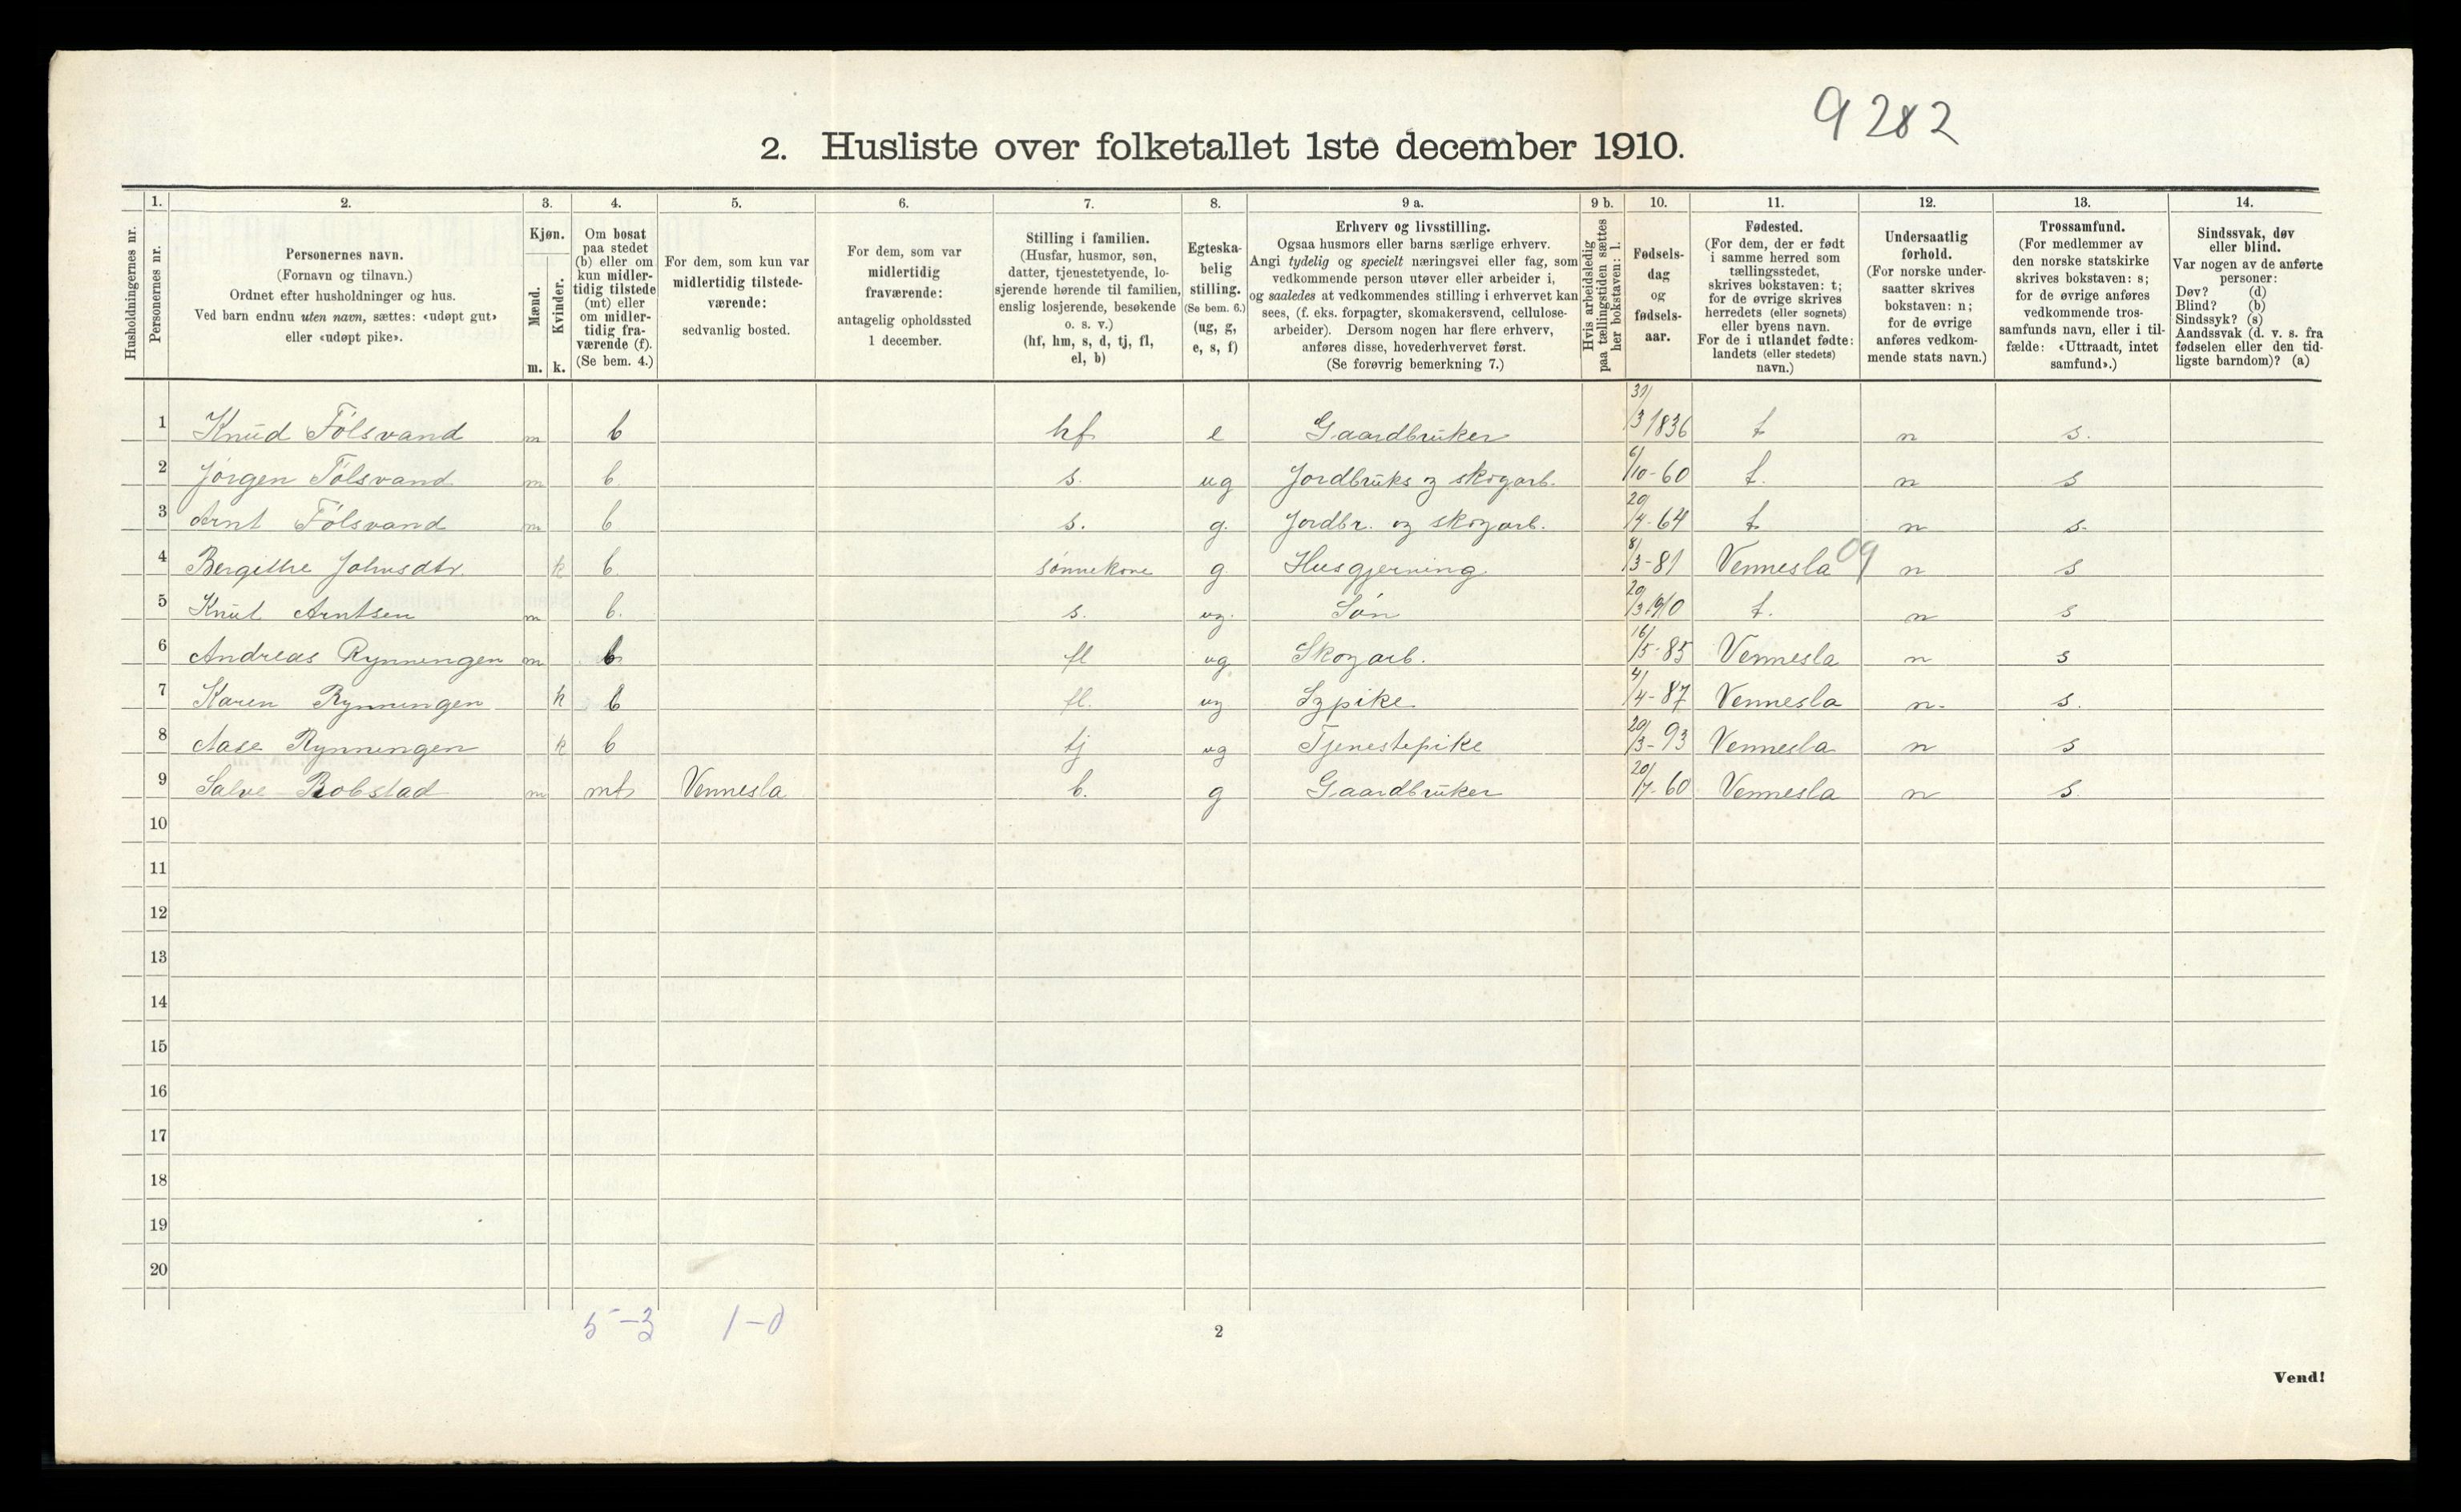 9282
2. Husliste over folketallet 1ste december 1910.
Husholdningernes nr.
1. Personernes nr.
2. Personernes navn.
(Fornavn og tilnavn.)
Ordnet efter husholdninger og hus.
Ved barn endnu uten navn, sættes: «udøpt gut»
eller «udøpt pike».
3. Kjøn.
Mænd. m.
Kvinder. k.
4. Om bosat
paa stedet
(b) eller om
kun midler-
tidig tilstede
(mt) eller
om midler-
tidig fra-
værende (f).
(Se bem. 4.)
5. For dem, som kun var
midlertidig tilstede-
værende:
sedvanlig bosted.
6. For dem, som var
midlertidig
fraværende:
antagelig opholdssted
1 december.
7. Stilling i familien.
(Husfar, husmor, søn,
datter, tjenestetyende, lo-
sjerende hørende til familien,
enslig losjerende, besøkende
o. s. v.)
(hf, hm, s, d, tj, fl,
el, b)
8. Egteska-
belig
stilling.
(Se bem. 6.)
(ug, g,
e, s, f)
9 a. Erhverv og livsstilling.
Ogsaa husmors eller barns særlige erhverv.
Angi tydelig og specielt næringsvei eller fag, som
vedkommende person utøver eller arbeider i,
og saaledes at vedkommendes stilling i erhvervet kan
sees, (f. eks. forpagter, skomakersvend, cellulose-
arbeider). Dersom nogen har flere erhverv,
anføres disse, hovederhvervet først.
(Se forøvrig bemerkning 7.)
9 b. Hvis arbeidsledig
paa tællingstiden sættes
her bokstaven: l.
10. Fødsels-
dag
og
fødsels-
aar.
11. Fødested.
(For dem, der er født
i samme herred som
tællingsstedet,
skrives bokstaven: t;
for de øvrige skrives
herredets (eller sognets)
eller byens navn.
For de i utlandet fødte:
landets (eller stedets)
navn.)
12. Undersaatlig
forhold.
(For norske under-
saatter skrives
bokstaven: n;
for de øvrige
anføres vedkom-
mende stats navn.)
13. Trossamfund.
(For medlemmer av
den norske statskirke
skrives bokstaven: s;
for de øvrige anføres
vedkommende tros-
samfunds navn, eller i til-
fælde: «Uttraadt, intet
samfund».)
14. Sindssvak, døv
eller blind.
Var nogen av de anførte
personer:
Døv? (d)
Blind? (b)
Sindssyk? (s)
Aandssvak (d. v. s. fra
fødselen eller den tid-
ligste barndom)? (a)
1 Knud Fólsvand m b hf e Gaardbruker 31/3 1836 t n s.
2 Jørgen Fólsvand m b. s. ug Jordbruks og skogarb. 6/10-60 t. n s
3 Arnt Fólsvand m b s. g. Jordbr. og skogarb. 20/4-64 t n s.
4 Bergithe Johnsdtr. k b. sønnekone g Husgjerning 8/3-81 Vennesla 09 n s
5 Knut Arntsen m b. s. ug. Søn 20/3 1910 t. n s
6 Andreas Rynningen m b fl ug Skogarb. 16/5-85 Vennesla n s
7 Karen Rynningen k b fl. ug Sypike 4/4-87 Vennesla n. s.
8 Aase Rynningen k b tj ug Tjenestepike 20/3-93 Vennesla n s
9 Salve Robstad m mt Vennesla b. g Gaardbruker 20/7-60 Vennesla n s.
10
11
12
13
14
15
16
17
18
19
20
5-3 1-0
2
Vend!